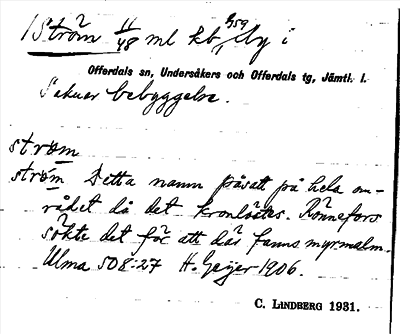 1 Ström 11/48 ml kb, by i
Offerdals sn, Undersåkers och Offerdals tg, Jämtl. l.
Saknar bebyggelse.
strøm
strøm Detta namn påsatt på hela om-
rådet då det kronlöstes. Rönnefors
sökte det för att där fanns myrmalm.
Ulma 508:27 H. Geijer 1906.
C. LINDBERG 1931.